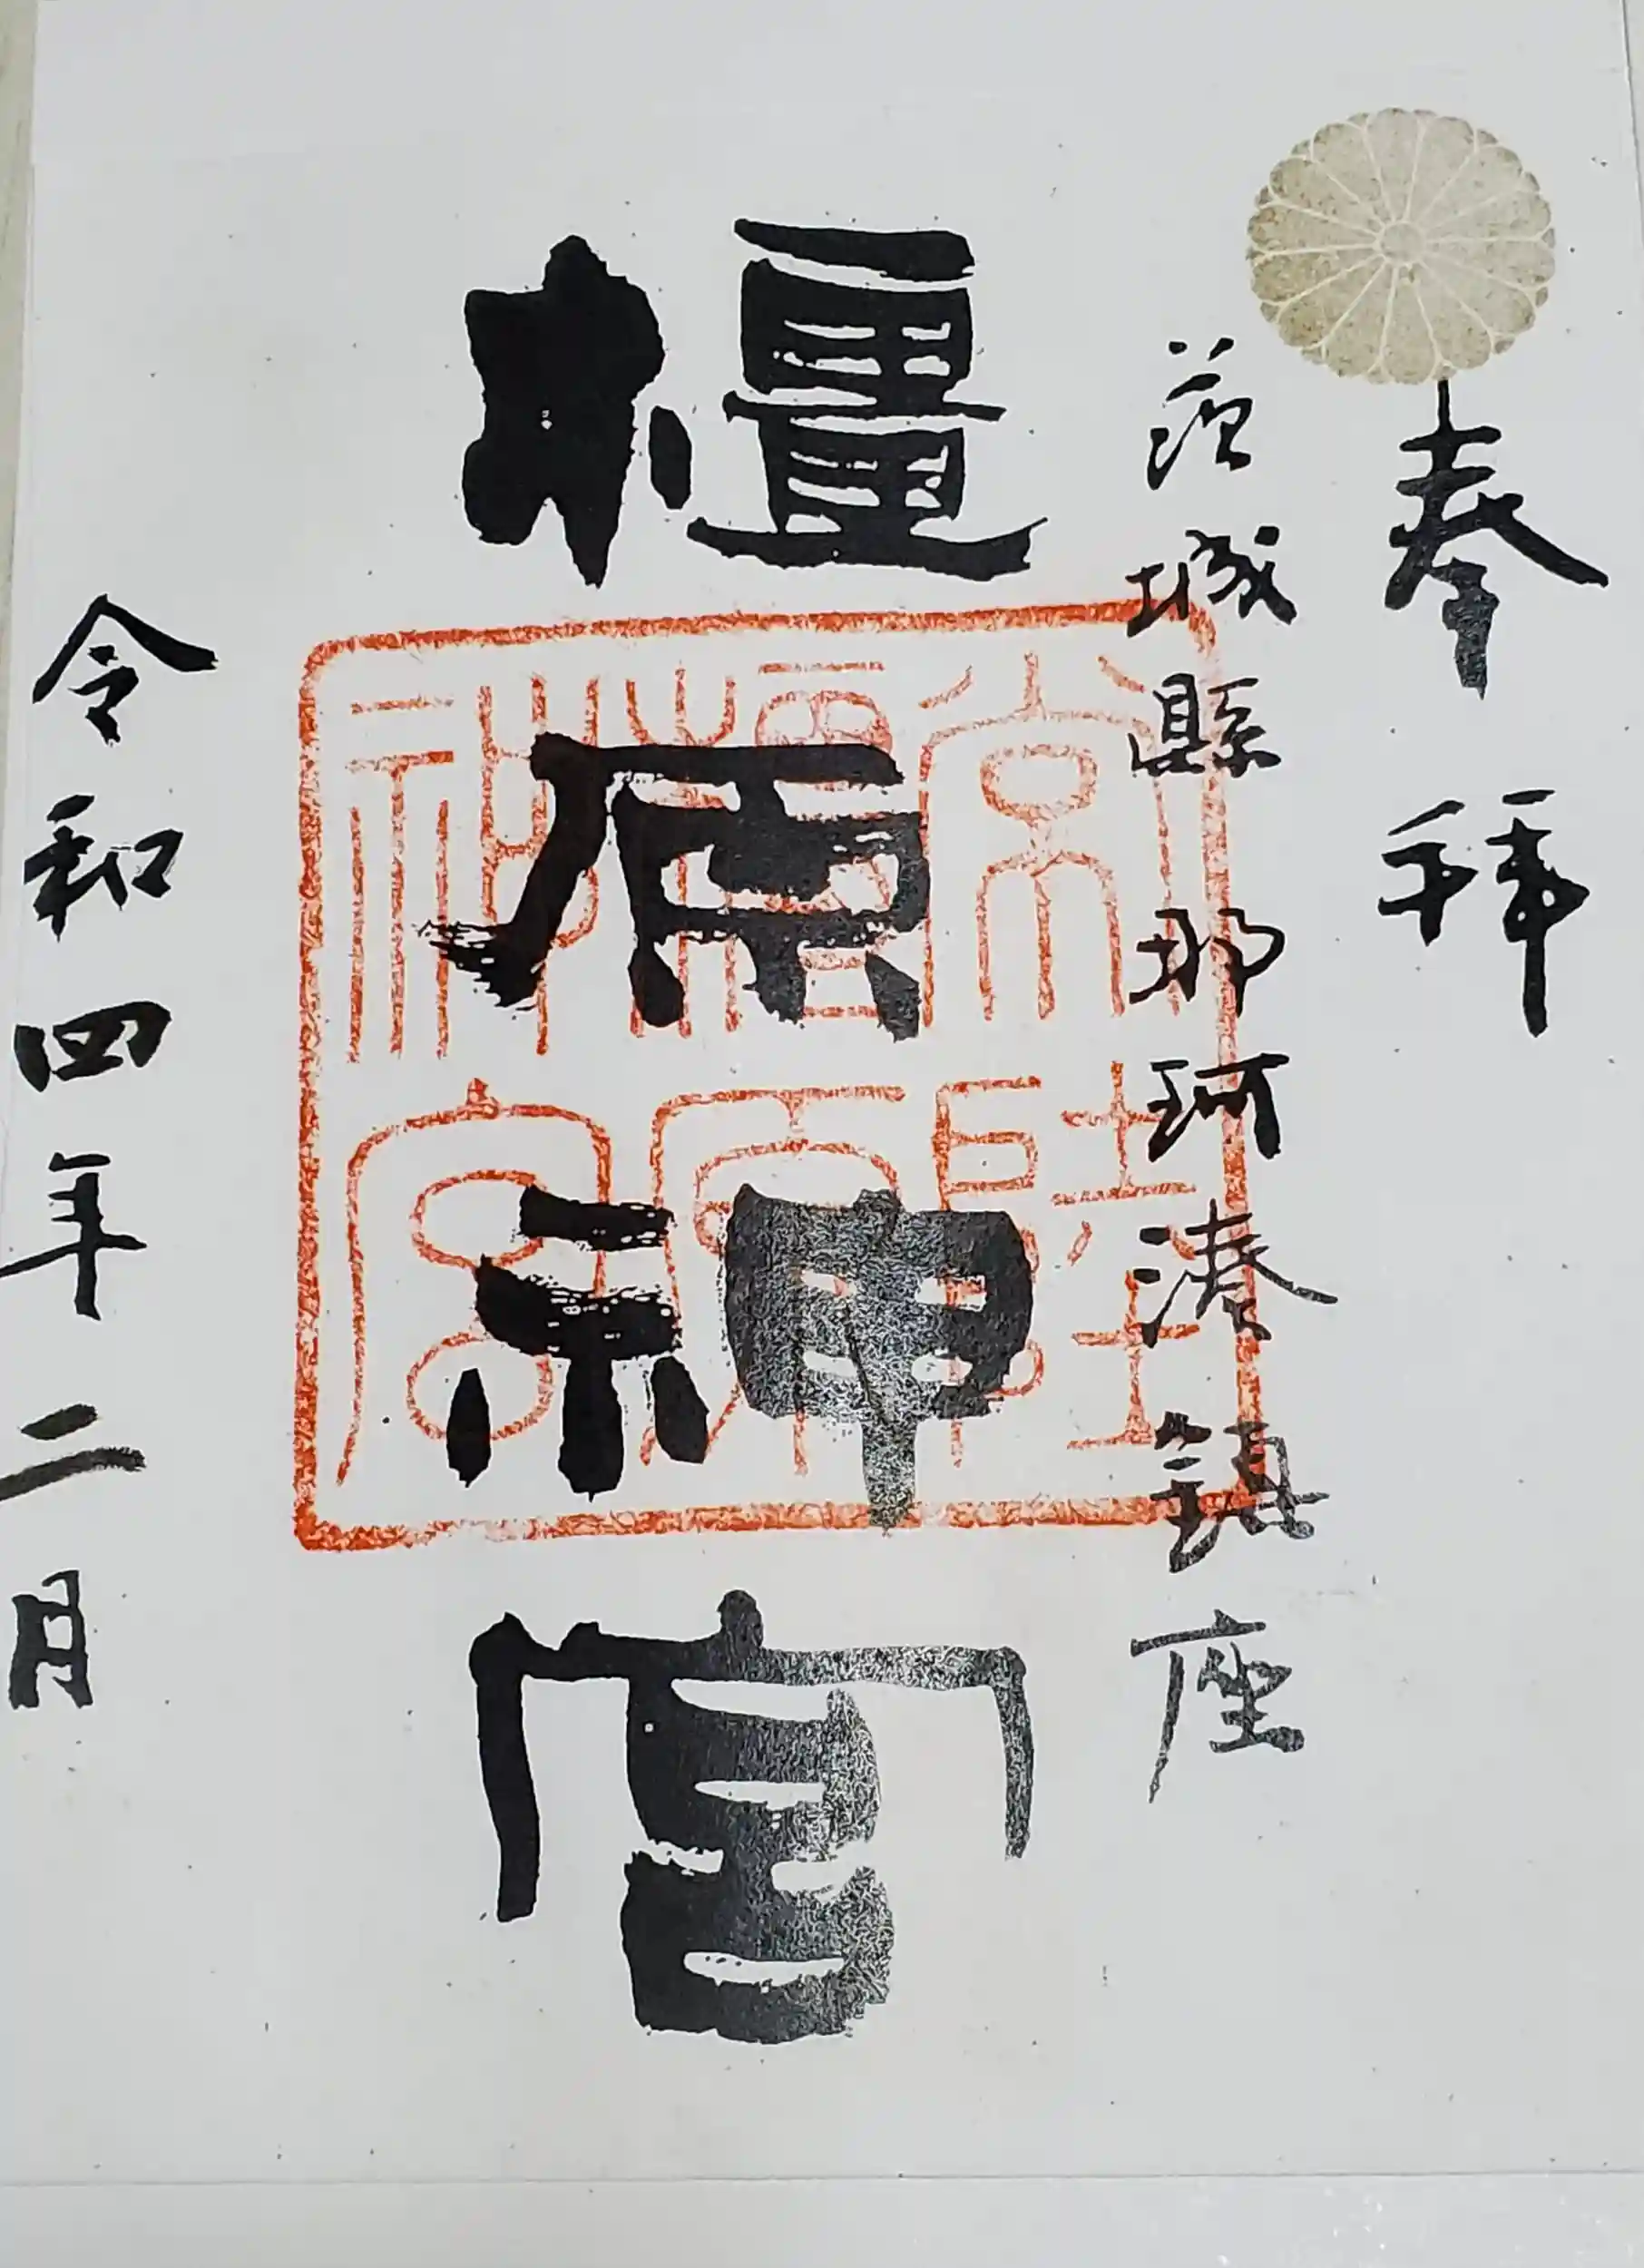 奉拜
茨城縣那珂湊鎮座
橿原神宮
令和四年二月
常陸
橿原
神宮